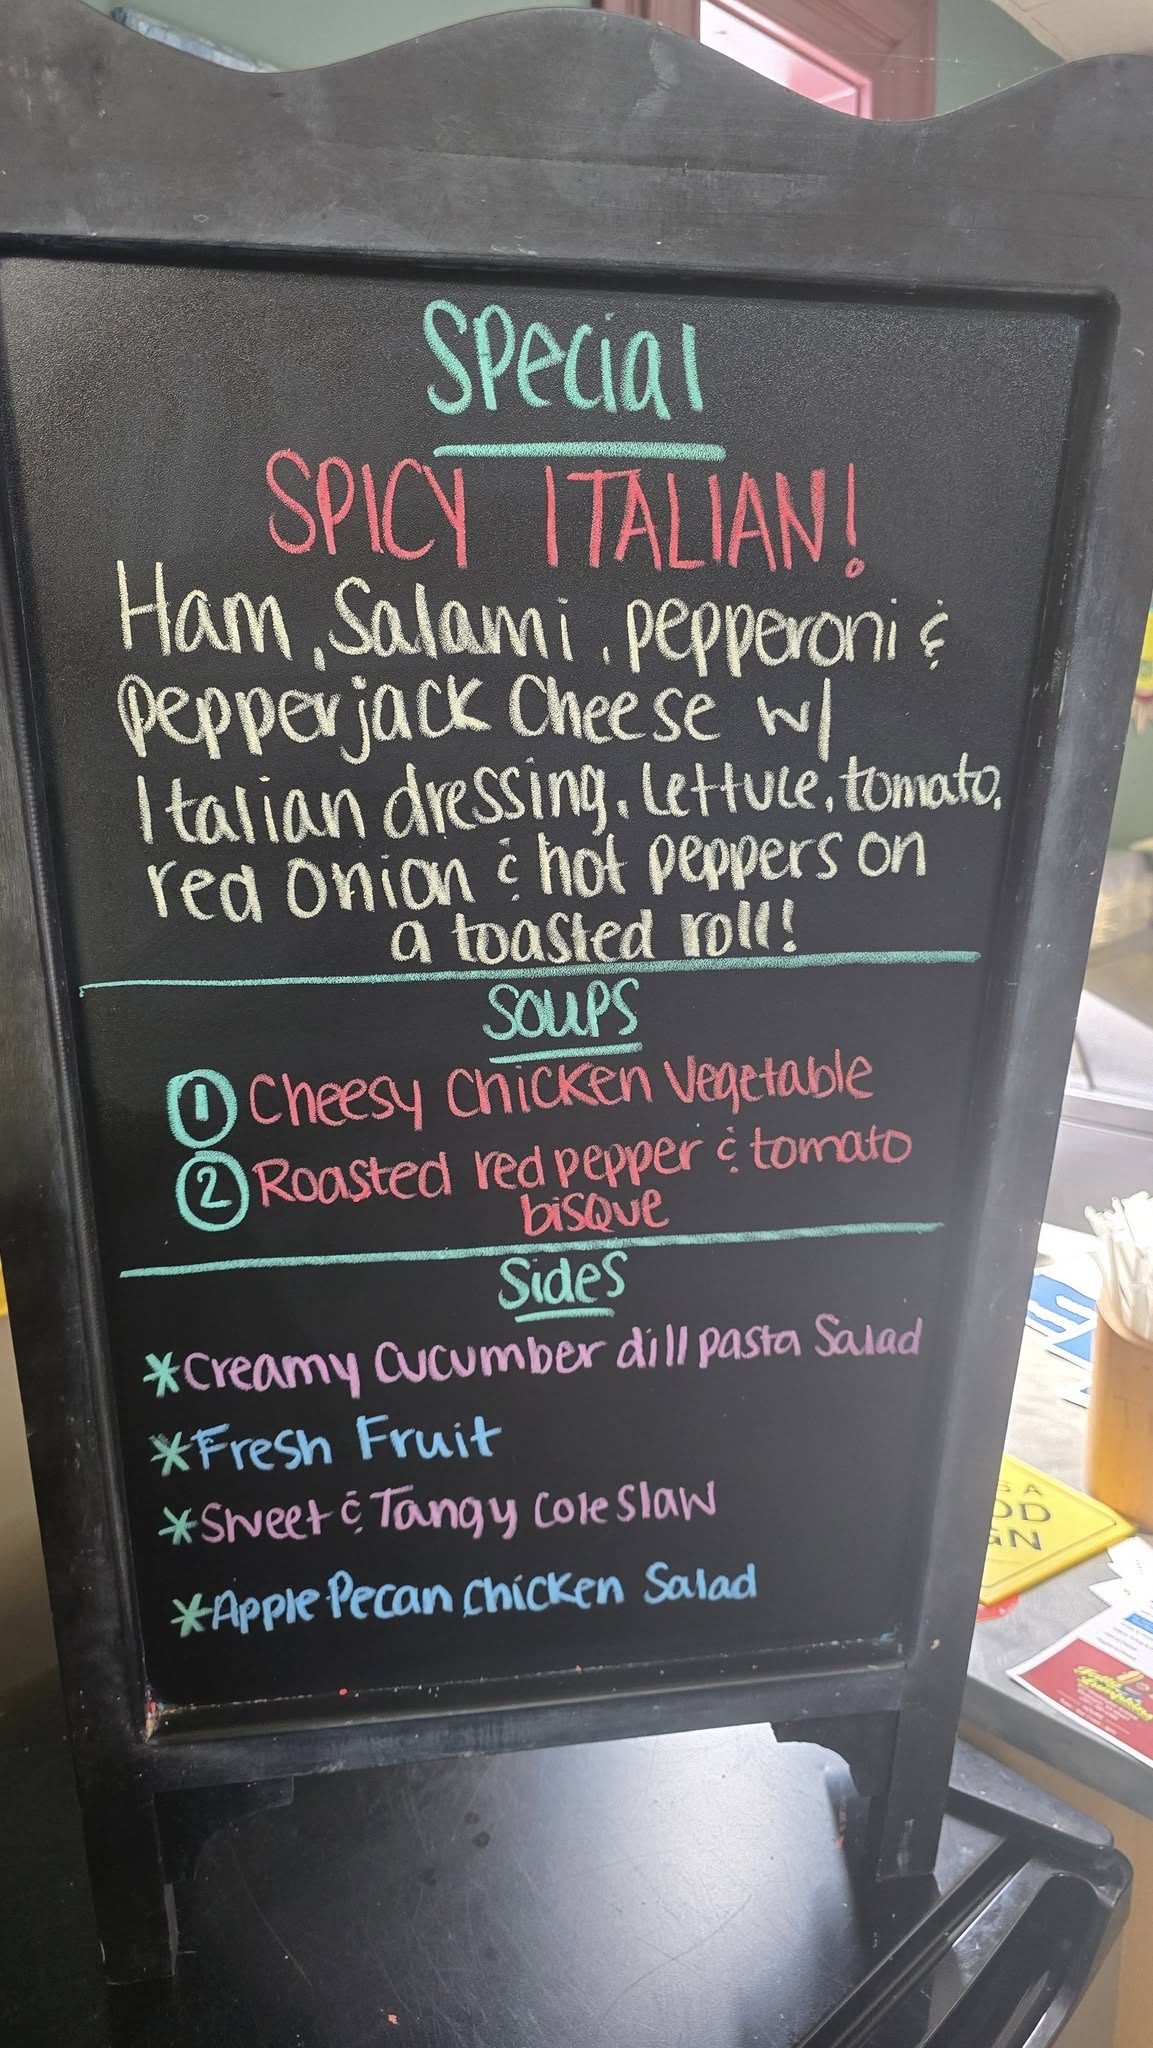 Special
SPICY ITALIAN!
Ham, Salami, pepperoni &
pepperjack Cheese w/
Italian dressing, lettuce, tomato,
red onion & hot peppers on
a toasted roll!
SOUPS
1 Cheesy Chicken Vegetable
2 Roasted red pepper & tomato
bisque
Sides
*Creamy Cucumber dill pasta Salad
*Fresh Fruit
*Sweet & Tangy Cole Slaw
*Apple Pecan Chicken Salad